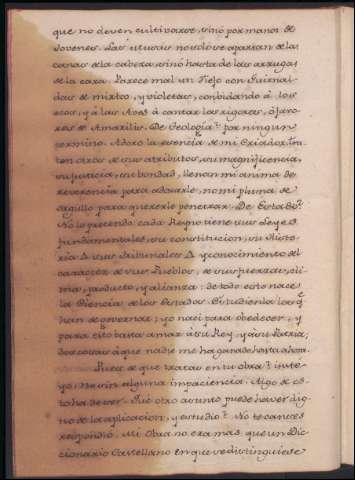 que no deven cultivarse, sinó por manos de
Jovenes. Las ulvas no solo se apartan de las
canas de la cabeza, sinó hasta de las arrugas
de la cara. Parece mal un Viejo con Guirnal-
das de mirtos, y violetas, conbidando á los
ecos, y á las Aves á cantar los rigores, ó favo-
res de Amarilis. De Teología? por ningun
termino. Adoro la esencia de mi Criador. Tra-
ten otros de sus atributos, su magnificencia,
su justicia, su bondad, llenan mi anima de
reverencia para adorarle, no mi pluma de
orgullo para quererle penetrar. De Estado?
No lo pretendo. cada Reyno tiene sus Leyes
fundamentales, su constitucion, su Histo-
ria, sus Tribunales, y conocimiento del
caracter de sus Pueblos, de sus fuerzas, cli-
ma, producto, y alianza: de todo esto nace
la Ciencia de los Estados. Estudienla los q.e
han de governar; yo nací para obedecer, y
para esto basta amar á su Rey, y á su Patria;
dos cosas á que nadie me ha ganado hasta ahora.
Pues de que tratas en tu obra? insté
yo, no sin alguna impaciencia. Algo de es-
to ha de ser. Qué otro asunto puede haver dig-
no de la aplicacion, y estudio? No te canses
respondió. Mi Obra no era mas que un Dic-
cionario Castellano en que se distinguiese